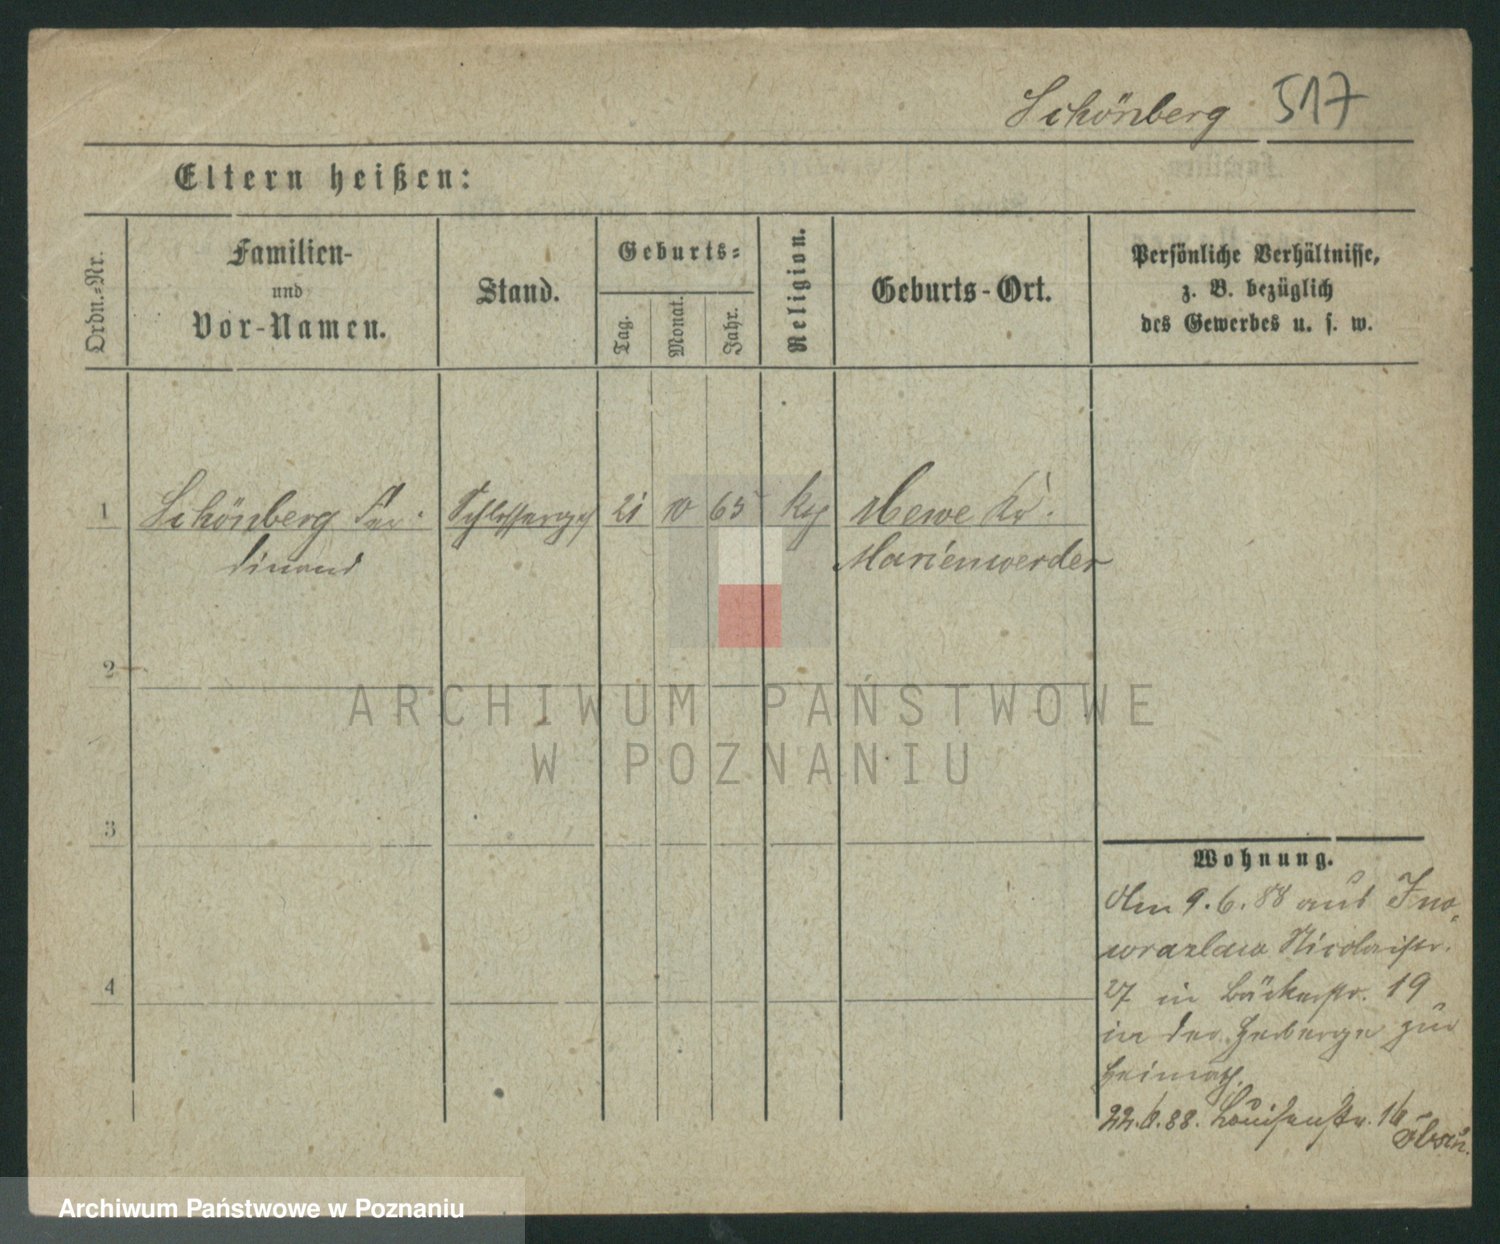 Schönberg 517
Eltern heißen:
Ordn.-Nr.
Familien-
und
Vor-Namen.
Stand.
Geburts-
Tag.
Monat.
Jahr.
Religion.
Geburts-Ort.
Persönliche Verhältnisse,
z. B. bezüglich
des Gewerbes u. s. w.
1 Schönberg Fer- Schlosserges 21 10 65 Mewe Kr.
dinand Marienwerder
2
ARCHIWUM PAŃSTWOWE
W POZNANIU
3
Wohnung.
Am 9.6.88 aus Ino-
wrazlaw Nicolaistr.
27 in Bäckerstr. 19
4
in der Herberge zur
Heimath.
22.6.88. Louisenstr. 16
Archiwum Państwowe w Poznaniu